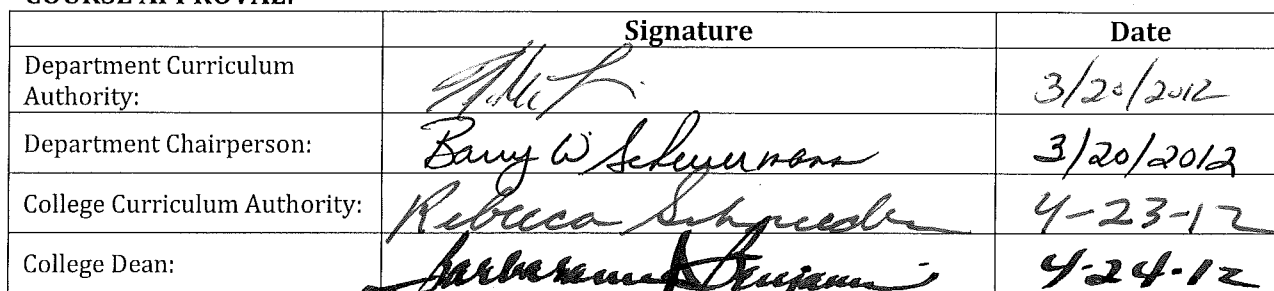 COURSE APPROVAL:
Signature Date
Department Curriculum
Authority: 3/20/2012
Department Chairperson: Barry W Scheuermann 3/20/2012
College Curriculum Authority: Rebecca Schneider 4-23-12
College Dean: Benjamin 4-24-12